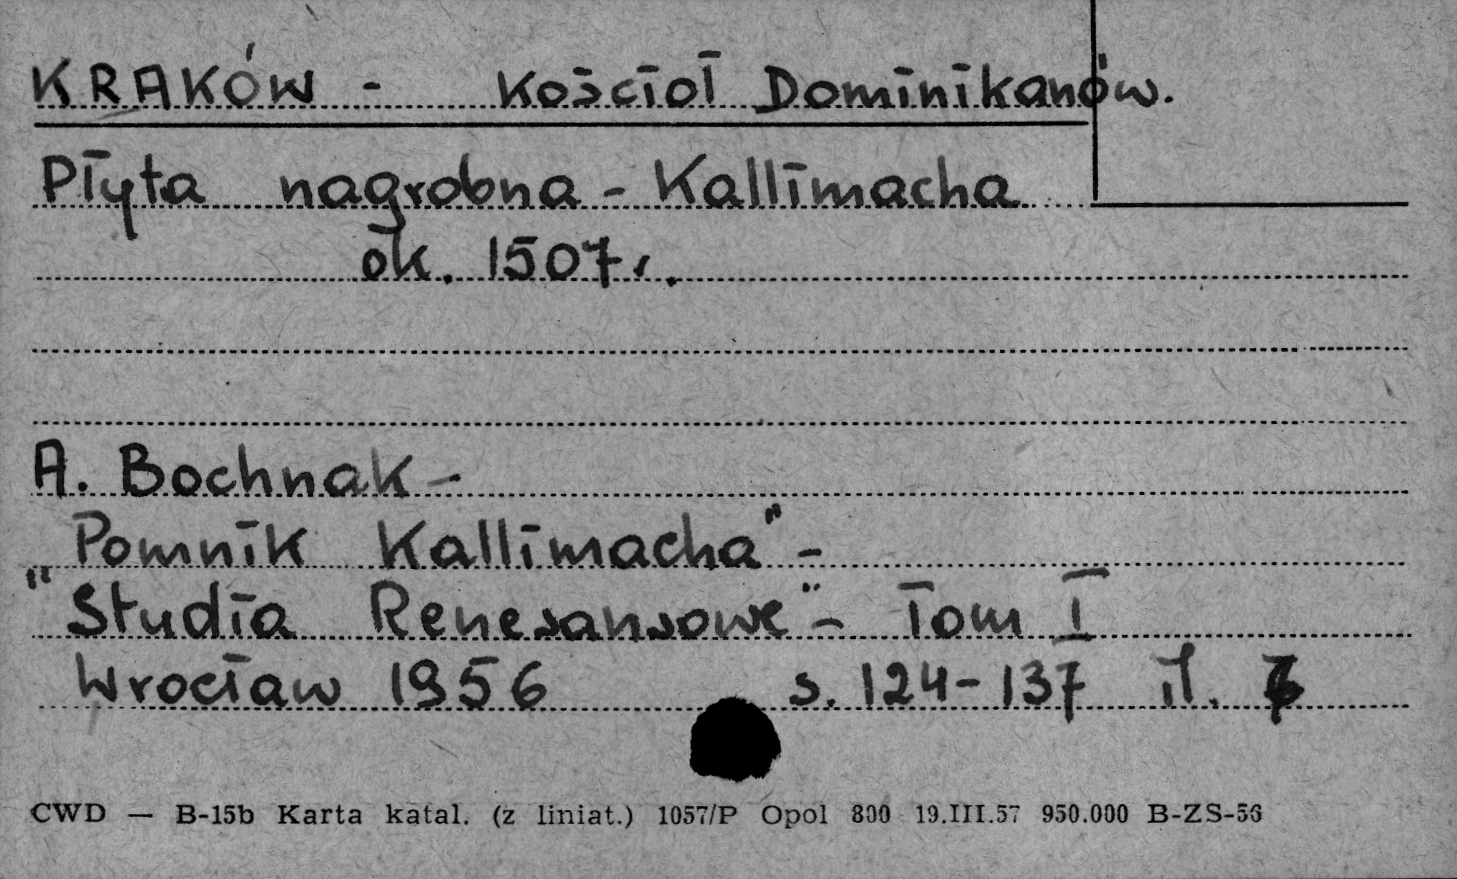 KRAKÓW - Kościół Dominikanów.
Płyta nagrobna - Kallimacha
ok. 1507 r.
A. Bochnak -
"Pomnik Kallimacha" -
"Studia Renesansowe" - Tom I
Wrocław 1956 s. 124-137 il.
CWD — B-15b Karta katal. (z liniat.) 1057/P Opol 800 19.III.57 950.000 B-ZS-56